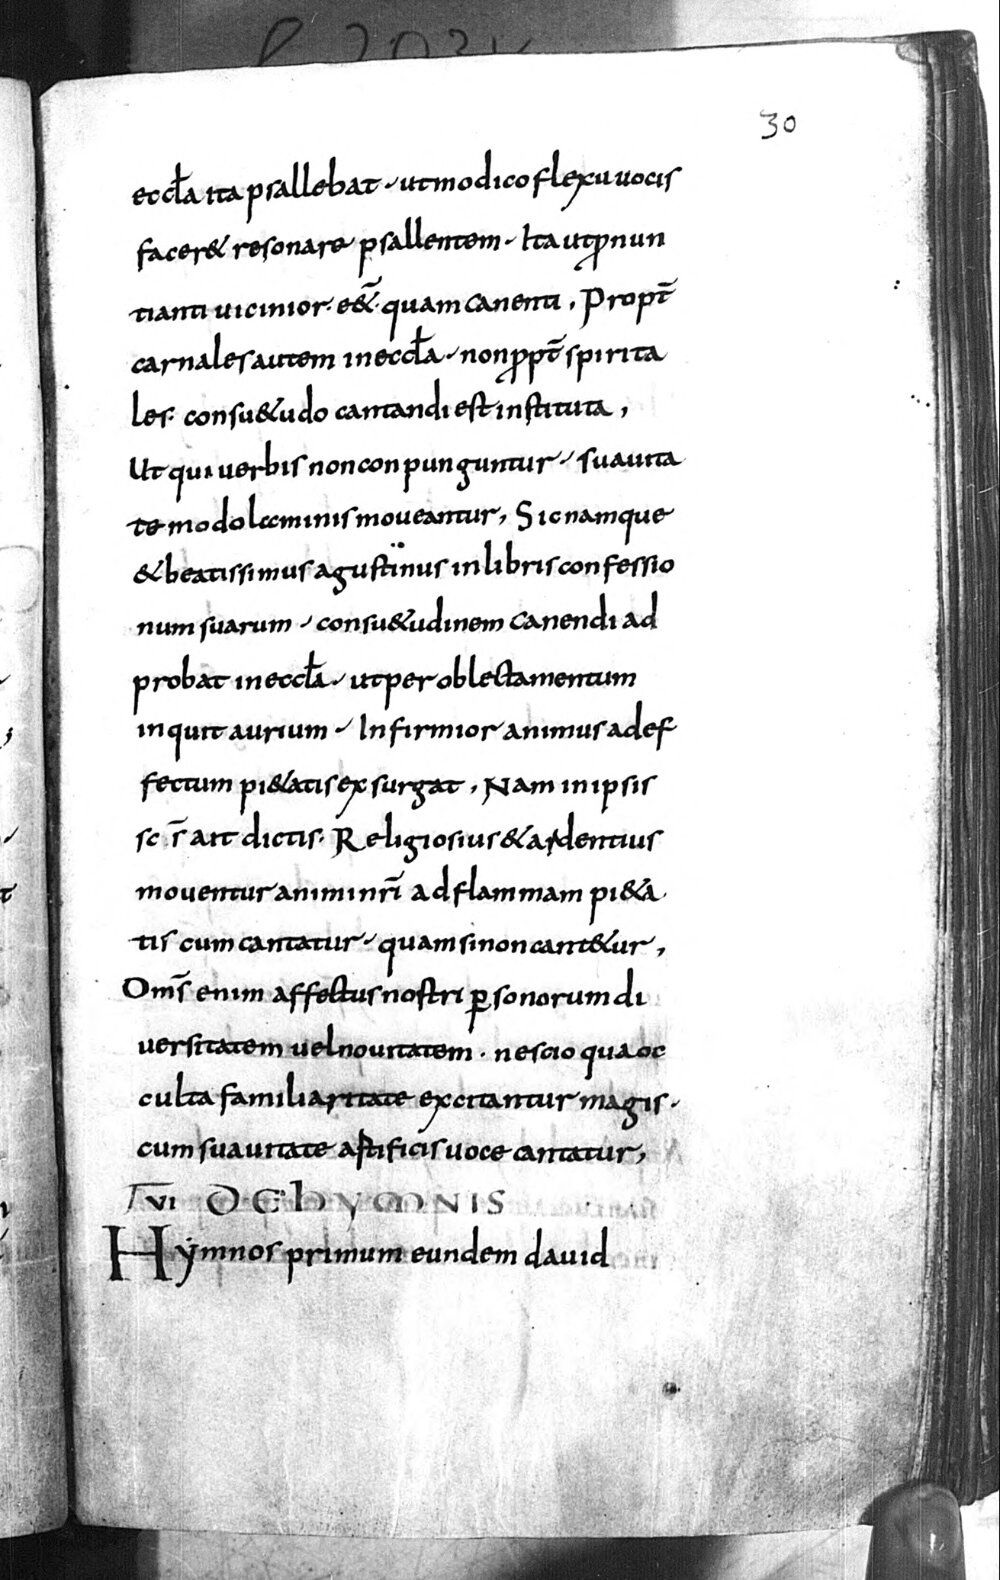 30
eccła ita psallebat · ut modico flexu uocis
facer& resonare psallentem · Ita ut ꝓnun
tianti uicinior · e&̄ · quam canenti, Propt̄
carnales autem in eccła · non ꝓpt̄ spirita
les · consu&udo cantandi est instituta,
Ut qui uerbis non conpunguntur · suauita
te modolaminis moueantur, Sic namque
& beatissimus agustinus in libris confessio
num suarum · consu&udinem canendi ad
probat in eccła · ut per oblectamentum
inquit aurium · Infirmior animus ad ef
fectum pi&atis exsurgat, Nam in ipsis
sc̄s ait dictis · Religiosius & ardentius
mouentur animi nr̄i ad flammam pi&a
tis cum cantatur · quam si non cant&ur,
Om̄s enim affectus nostri ꝑ sonorum di
uersitatem uel nouitatem · nescio qua oc
culta familiaritate excitantur magis ·
cum suauitate artificis uoce cantatur,
VI DE hYMNIS
Hẏmnos primum eundem dauid